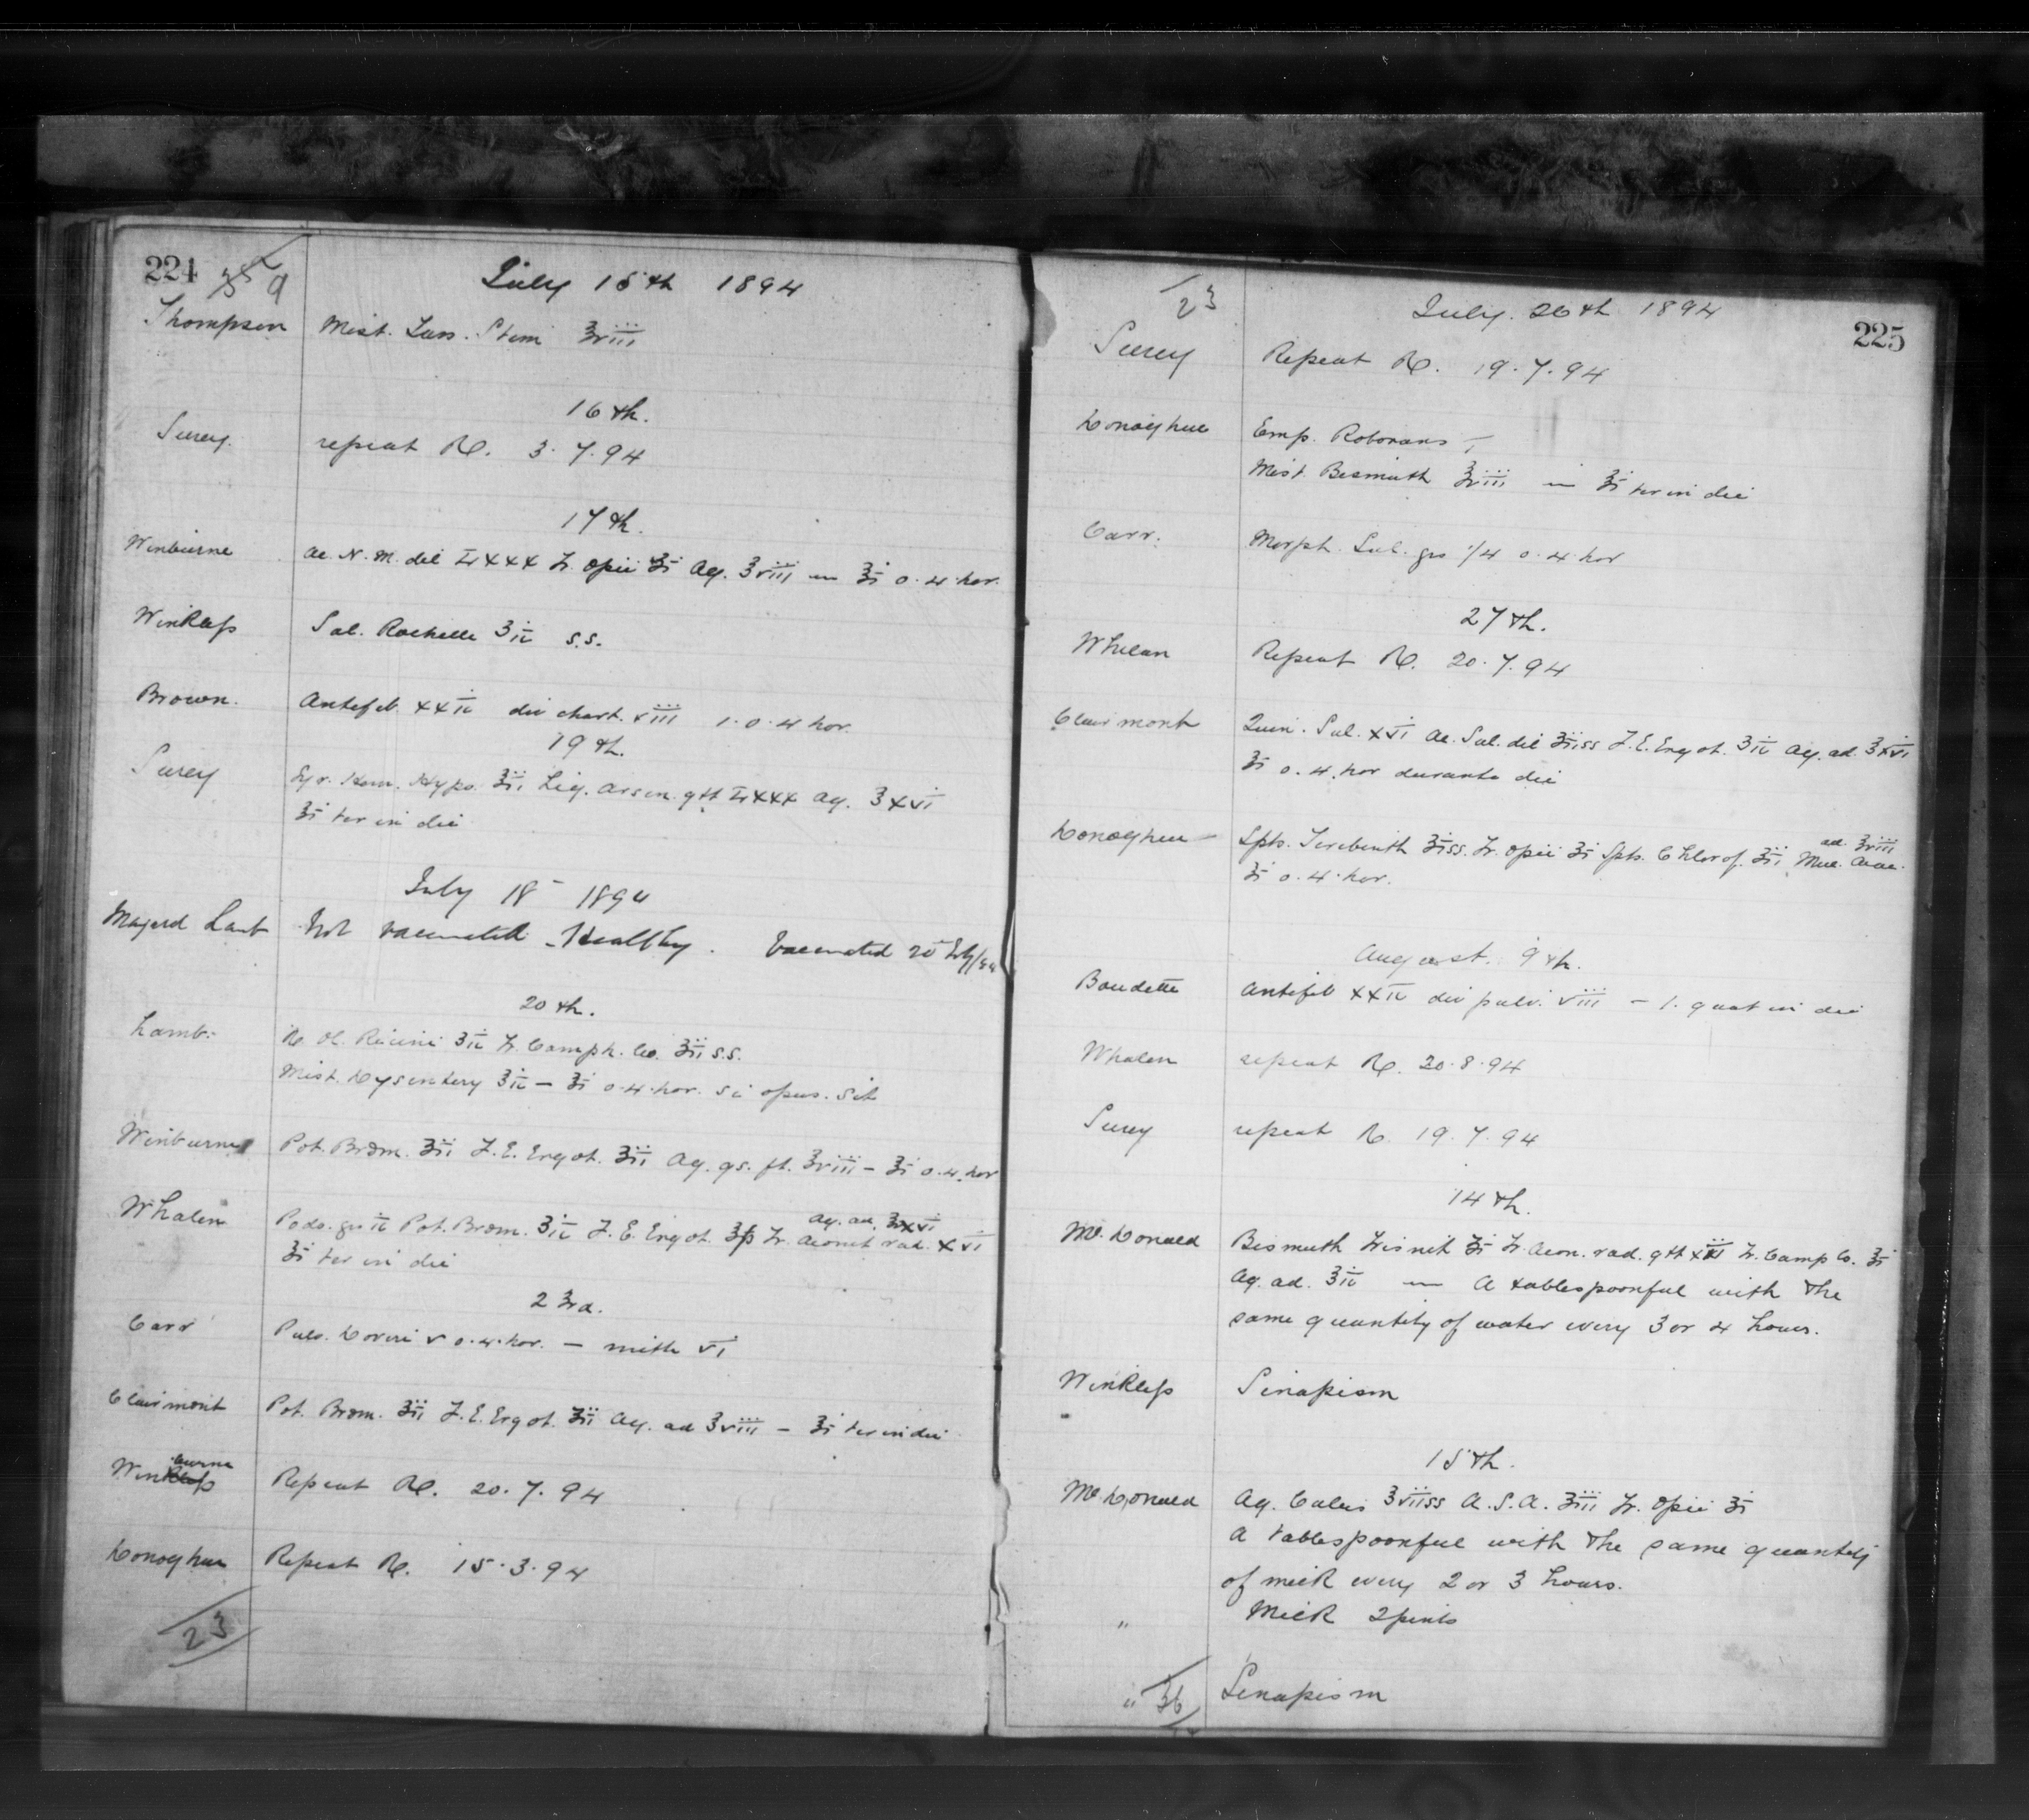 224
9
July 15th 1894
Thompson Mist. Tuss. Stim ʒviii
16th.
Surey. repeat Rx. 3.7.94
17th.
Winburne Ac. N. M. dil Lxxx Tr. Opii ʒi Aq. ʒviii — ʒi o. 4. hor.
Winkless Sal. Rochelle ʒiv s.s.
Brown. Antifeb. xxiv div chart. viii 1. o. 4 hor.
19th.
Surey Syr. Hypo. ʒii Liq. Arsen. gtt Lxxx Aq. ʒxvi
ʒi ter in die
July 18 1894
Not vaccinated. Healthy. Vaccinated 20 July/94
20th.
Lamb. Rx Ol. Ricini ʒiv Tr. Camph. Co. ʒii s.s.
Mist. Dysentery ʒiv — ʒi o. 4. hor. si opus. sit
Winburne Pot. Brom. ʒiii F. E. Ergot. ʒiii Aq. qs. ft. ʒviii — ʒi o. 4. hor
Aq. ad. ʒxvi
Whalen Podo. grs iv Pot. Brom. ʒiv F. E. Ergot. ʒß Tr. Aconit rad. xvi
ʒi ter in die
23rd.
Carr Pulv. Doveri v o. 4. hor. — mitte vi
Clairmont Pot. Brom. ʒiii F. E. Ergot. ʒiii Aq. ad ʒviii — ʒi ter in die
burne
Winkless Repeat Rx. 20. 7. 94
Donoghue Repeat Rx. 15. 3. 94
23
23
July. 26th 1894
225
Surey Repeat Rx. 19. 7. 94
Donoghue Emp. Roborans — i
Mist. Bismuth ʒviii — ʒi ter in die
Carr. Morph. Sul. grs 1/4 o. 4. hor
27th.
Whelan Repeat Rx. 20. 7. 94
Clairmont Quin. Sul. xvi Ac. Sul. dil ʒiiss F. E. Ergot. ʒiv Aq. ad. ʒxvi
ʒi o. 4. hor durante die
ad. ʒviii
Donoghue Spts. Terebinth ʒiss. Tr. Opii ʒi Spts. Chlorof. ʒiii Muc. Acac.
ʒi o. 4. hor.
August. 9th.
Baudette Antifeb xxiv div pulv. viii — 1. quat in die
Whalen repeat Rx. 20. 8. 94
Surey repeat Rx. 19. 7. 94
14th.
McDonald Bismuth Trisnit ʒi Tr. Acon. rad. gtt Tr. Camp Co. ʒi
Aq. ad. ʒiv — A tablespoonful with the
same quantity of water every 3 or 4 hours.
Winkless Sinapism
15th.
McDonald Aq. Calcis ʒviiss A. S. A. ʒiii Tr. Opii ʒi
A tablespoonful with the same quantity
of milk every 2 or 3 hours.
" Milk 2 pints
" 36 Sinapism